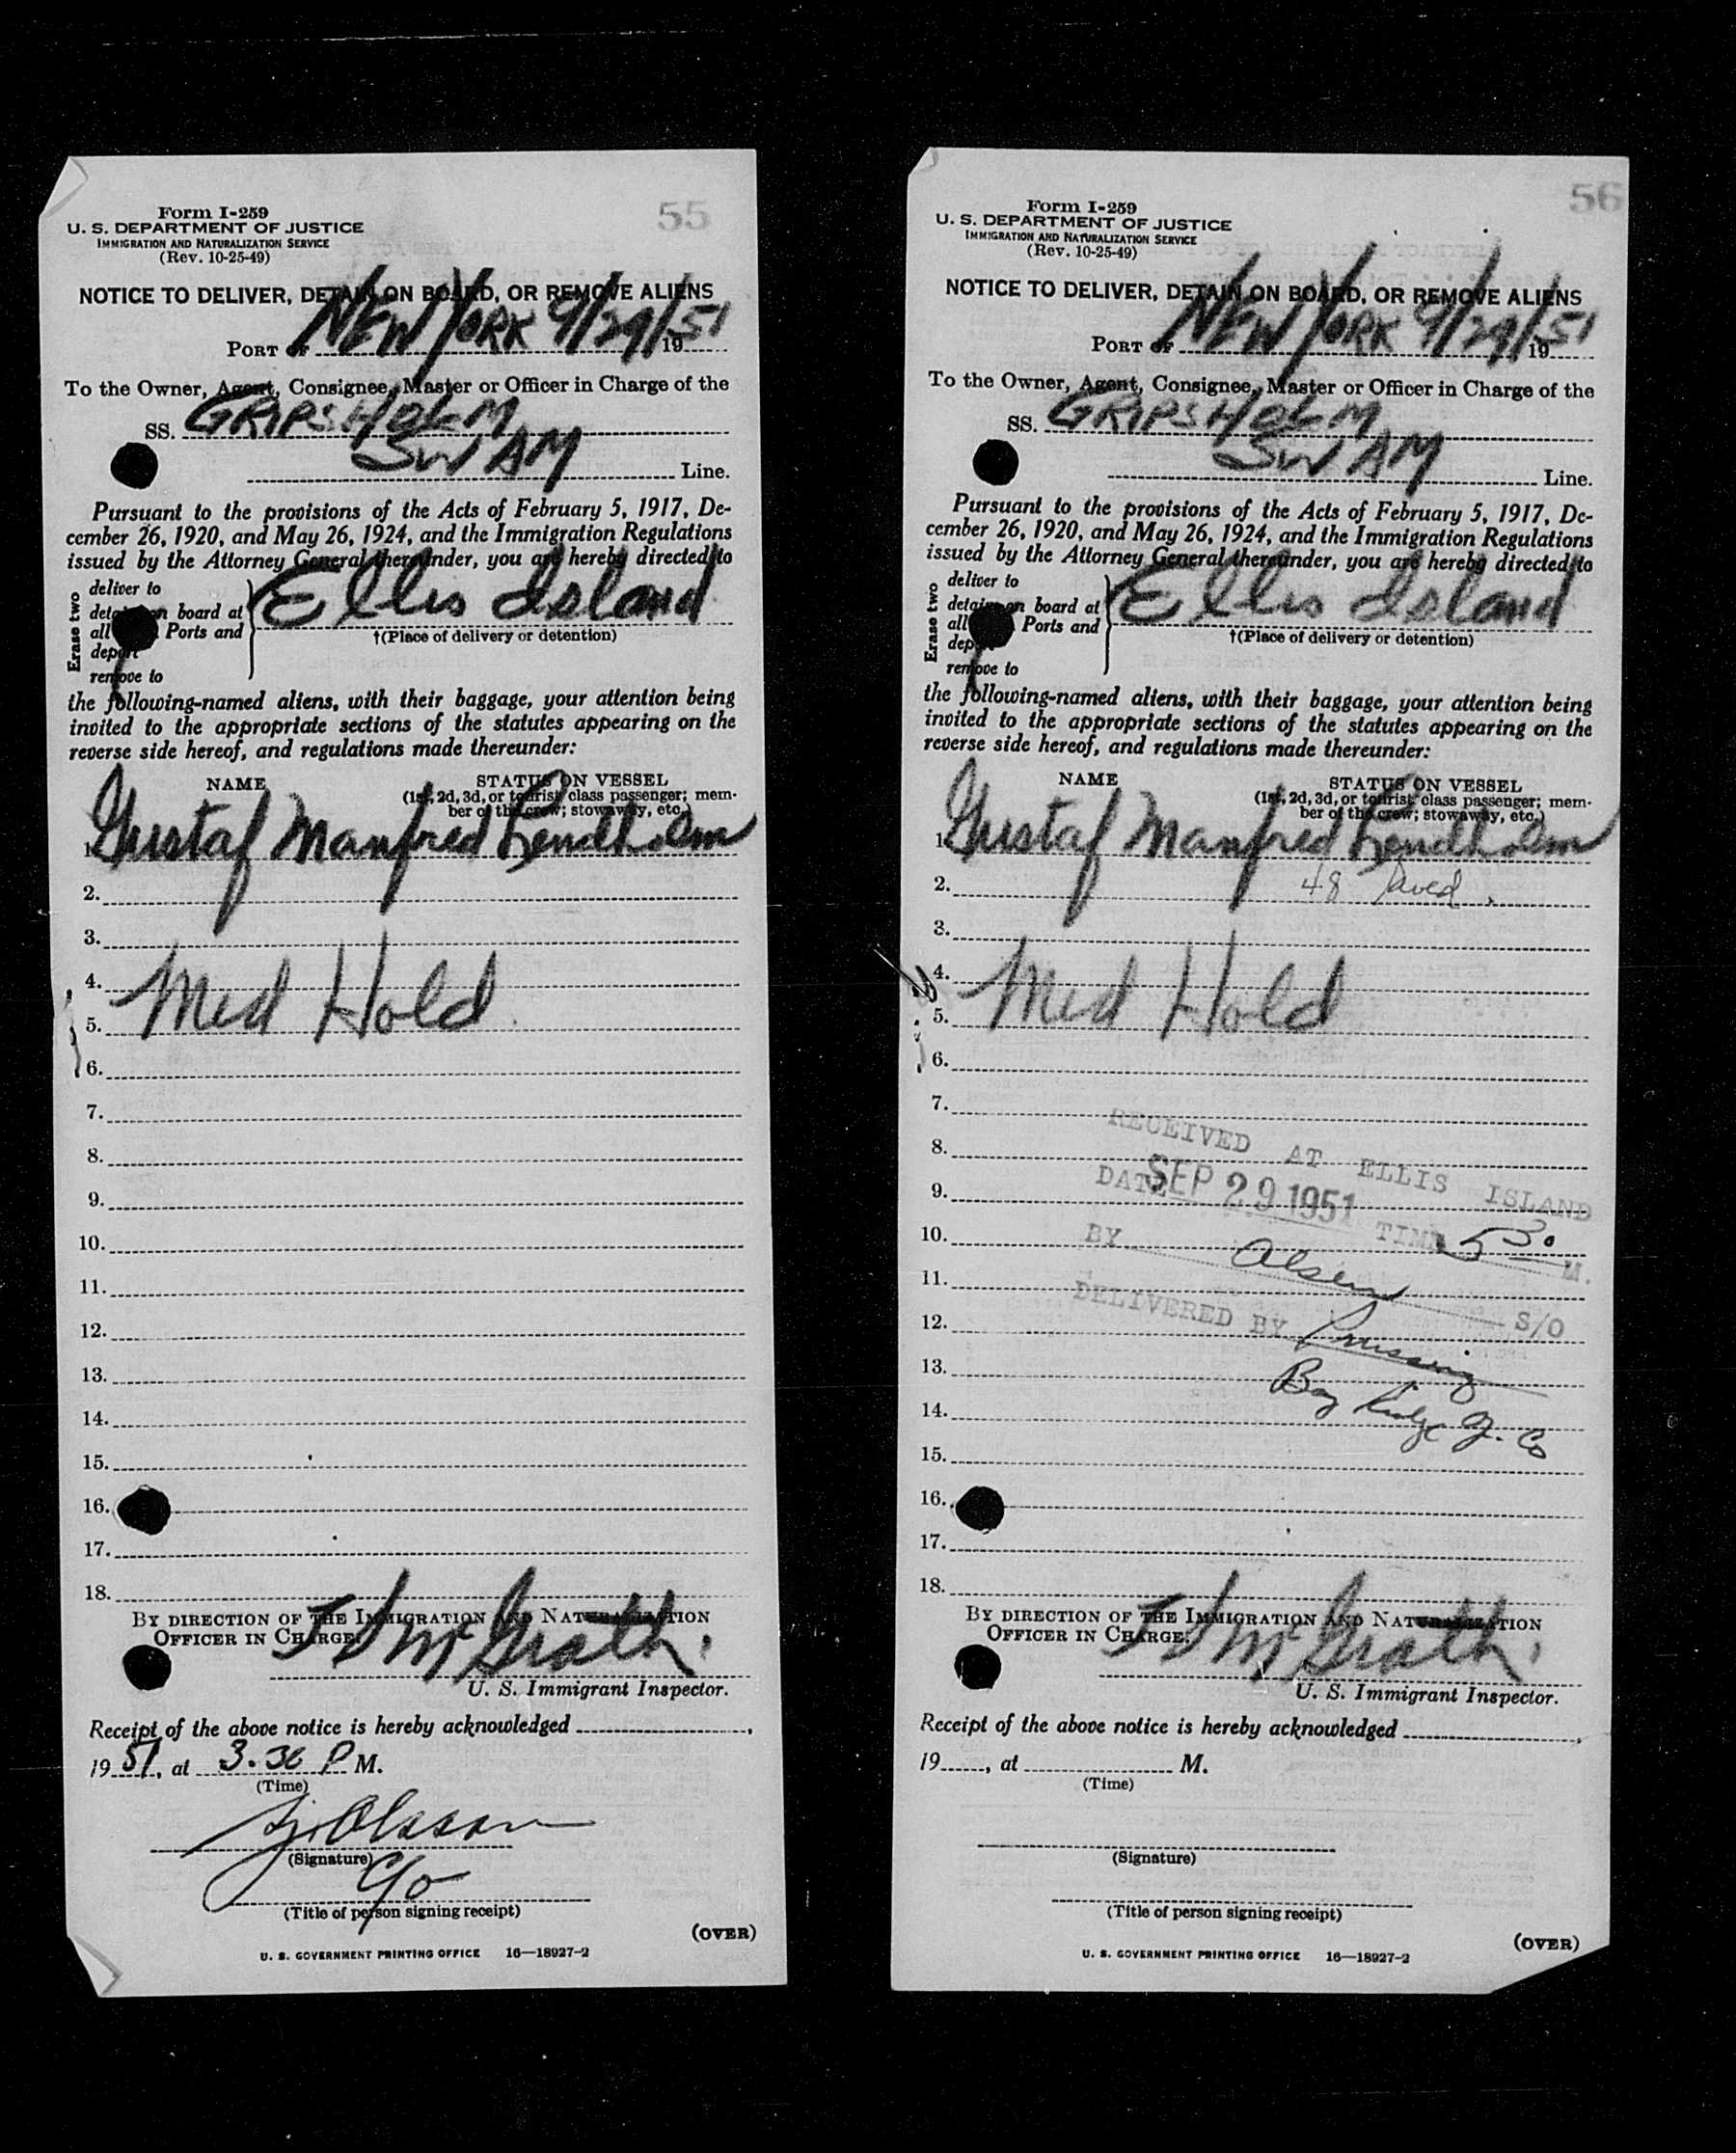 55
Form I-259
U. S. DEPARTMENT OF JUSTICE
IMMIGRATION AND NATURALIZATION SERVICE
(Rev. 10-25-49)
NOTICE TO DELIVER, DETAIN ON BOARD, OR REMOVE ALIENS
PORT OF NEW YORK 9/29/51 19
To the Owner, Agent, Consignee, Master or Officer in Charge of the
SS. GRIPSHOLM
SWAM Line.
Pursuant to the provisions of the Acts of February 5, 1917, De-
cember 26, 1920, and May 26, 1924, and the Immigration Regulations
issued by the Attorney General thereunder, you are hereby directed to
Erase two
deliver to
detain on board at
all Ports and
deport
remove to
Ellis Island
†(Place of delivery or detention)
the following-named aliens, with their baggage, your attention being
invited to the appropriate sections of the statutes appearing on the
reverse side hereof, and regulations made thereunder:
NAME
STATUS ON VESSEL
(1st, 2d, 3d, or tourist class passenger; mem-
ber of the crew; stowaway, etc.)
1. Gustaf Manfred
2.
3.
4.
Med Hold
5.
6.
7.
8.
9.
10.
11.
12.
13.
14.
15.
16.
17.
18.
BY DIRECTION OF THE IMMIGRATION AND NATURALIZATION
OFFICER IN CHARGE:
McGrath
U. S. Immigrant Inspector.
Receipt of the above notice is hereby acknowledged
1951, at 3.30 P M.
(Time)
Olsson
(Signature)
C/o
(Title of person signing receipt)
(OVER)
U. S. GOVERNMENT PRINTING OFFICE 16—18927-2
56
Form I-259
U. S. DEPARTMENT OF JUSTICE
IMMIGRATION AND NATURALIZATION SERVICE
(Rev. 10-25-49)
NOTICE TO DELIVER, DETAIN ON BOARD, OR REMOVE ALIENS
PORT OF NEW YORK 9/29/51 19
To the Owner, Agent, Consignee, Master or Officer in Charge of the
SS. GRIPSHOLM
SWAM Line.
Pursuant to the provisions of the Acts of February 5, 1917, De-
cember 26, 1920, and May 26, 1924, and the Immigration Regulations
issued by the Attorney General thereunder, you are hereby directed to
Erase two
deliver to
detain on board at
all Ports and
deport
remove to
Ellis Island
†(Place of delivery or detention)
the following-named aliens, with their baggage, your attention being
invited to the appropriate sections of the statutes appearing on the
reverse side hereof, and regulations made thereunder:
NAME
STATUS ON VESSEL
(1st, 2d, 3d, or tourist class passenger; mem-
ber of the crew; stowaway, etc.)
1. Gustaf Manfred
2. 48
3.
4.
Med Hold
5.
6.
7.
RECEIVED AT ELLIS ISLAND
8.
DATE SEP 29 1951 TIME 5 30 M.
9.
10.
BY Olsen S/O
11.
DELIVERED BY
12.
13.
Bay Ridge
14.
15.
16.
17.
18.
BY DIRECTION OF THE IMMIGRATION AND NATURALIZATION
OFFICER IN CHARGE:
McGrath
U. S. Immigrant Inspector.
Receipt of the above notice is hereby acknowledged
19, at M.
(Time)
(Signature)
(Title of person signing receipt)
(OVER)
U. S. GOVERNMENT PRINTING OFFICE 16—18927-2